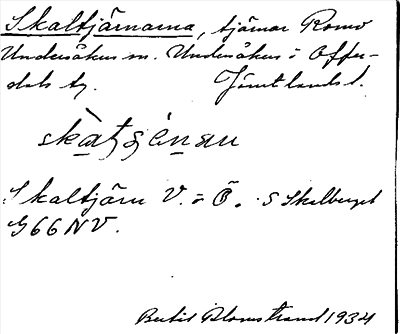 Skaltjärnarna, tjärnar Romo
Undersåkers sn. Undersåkers o Offer-
dals tg. Jämtlands l.
Skaltjärn V. o Ö. S Skalberget
G 66 NV.
Bertil Blomstrand 1934